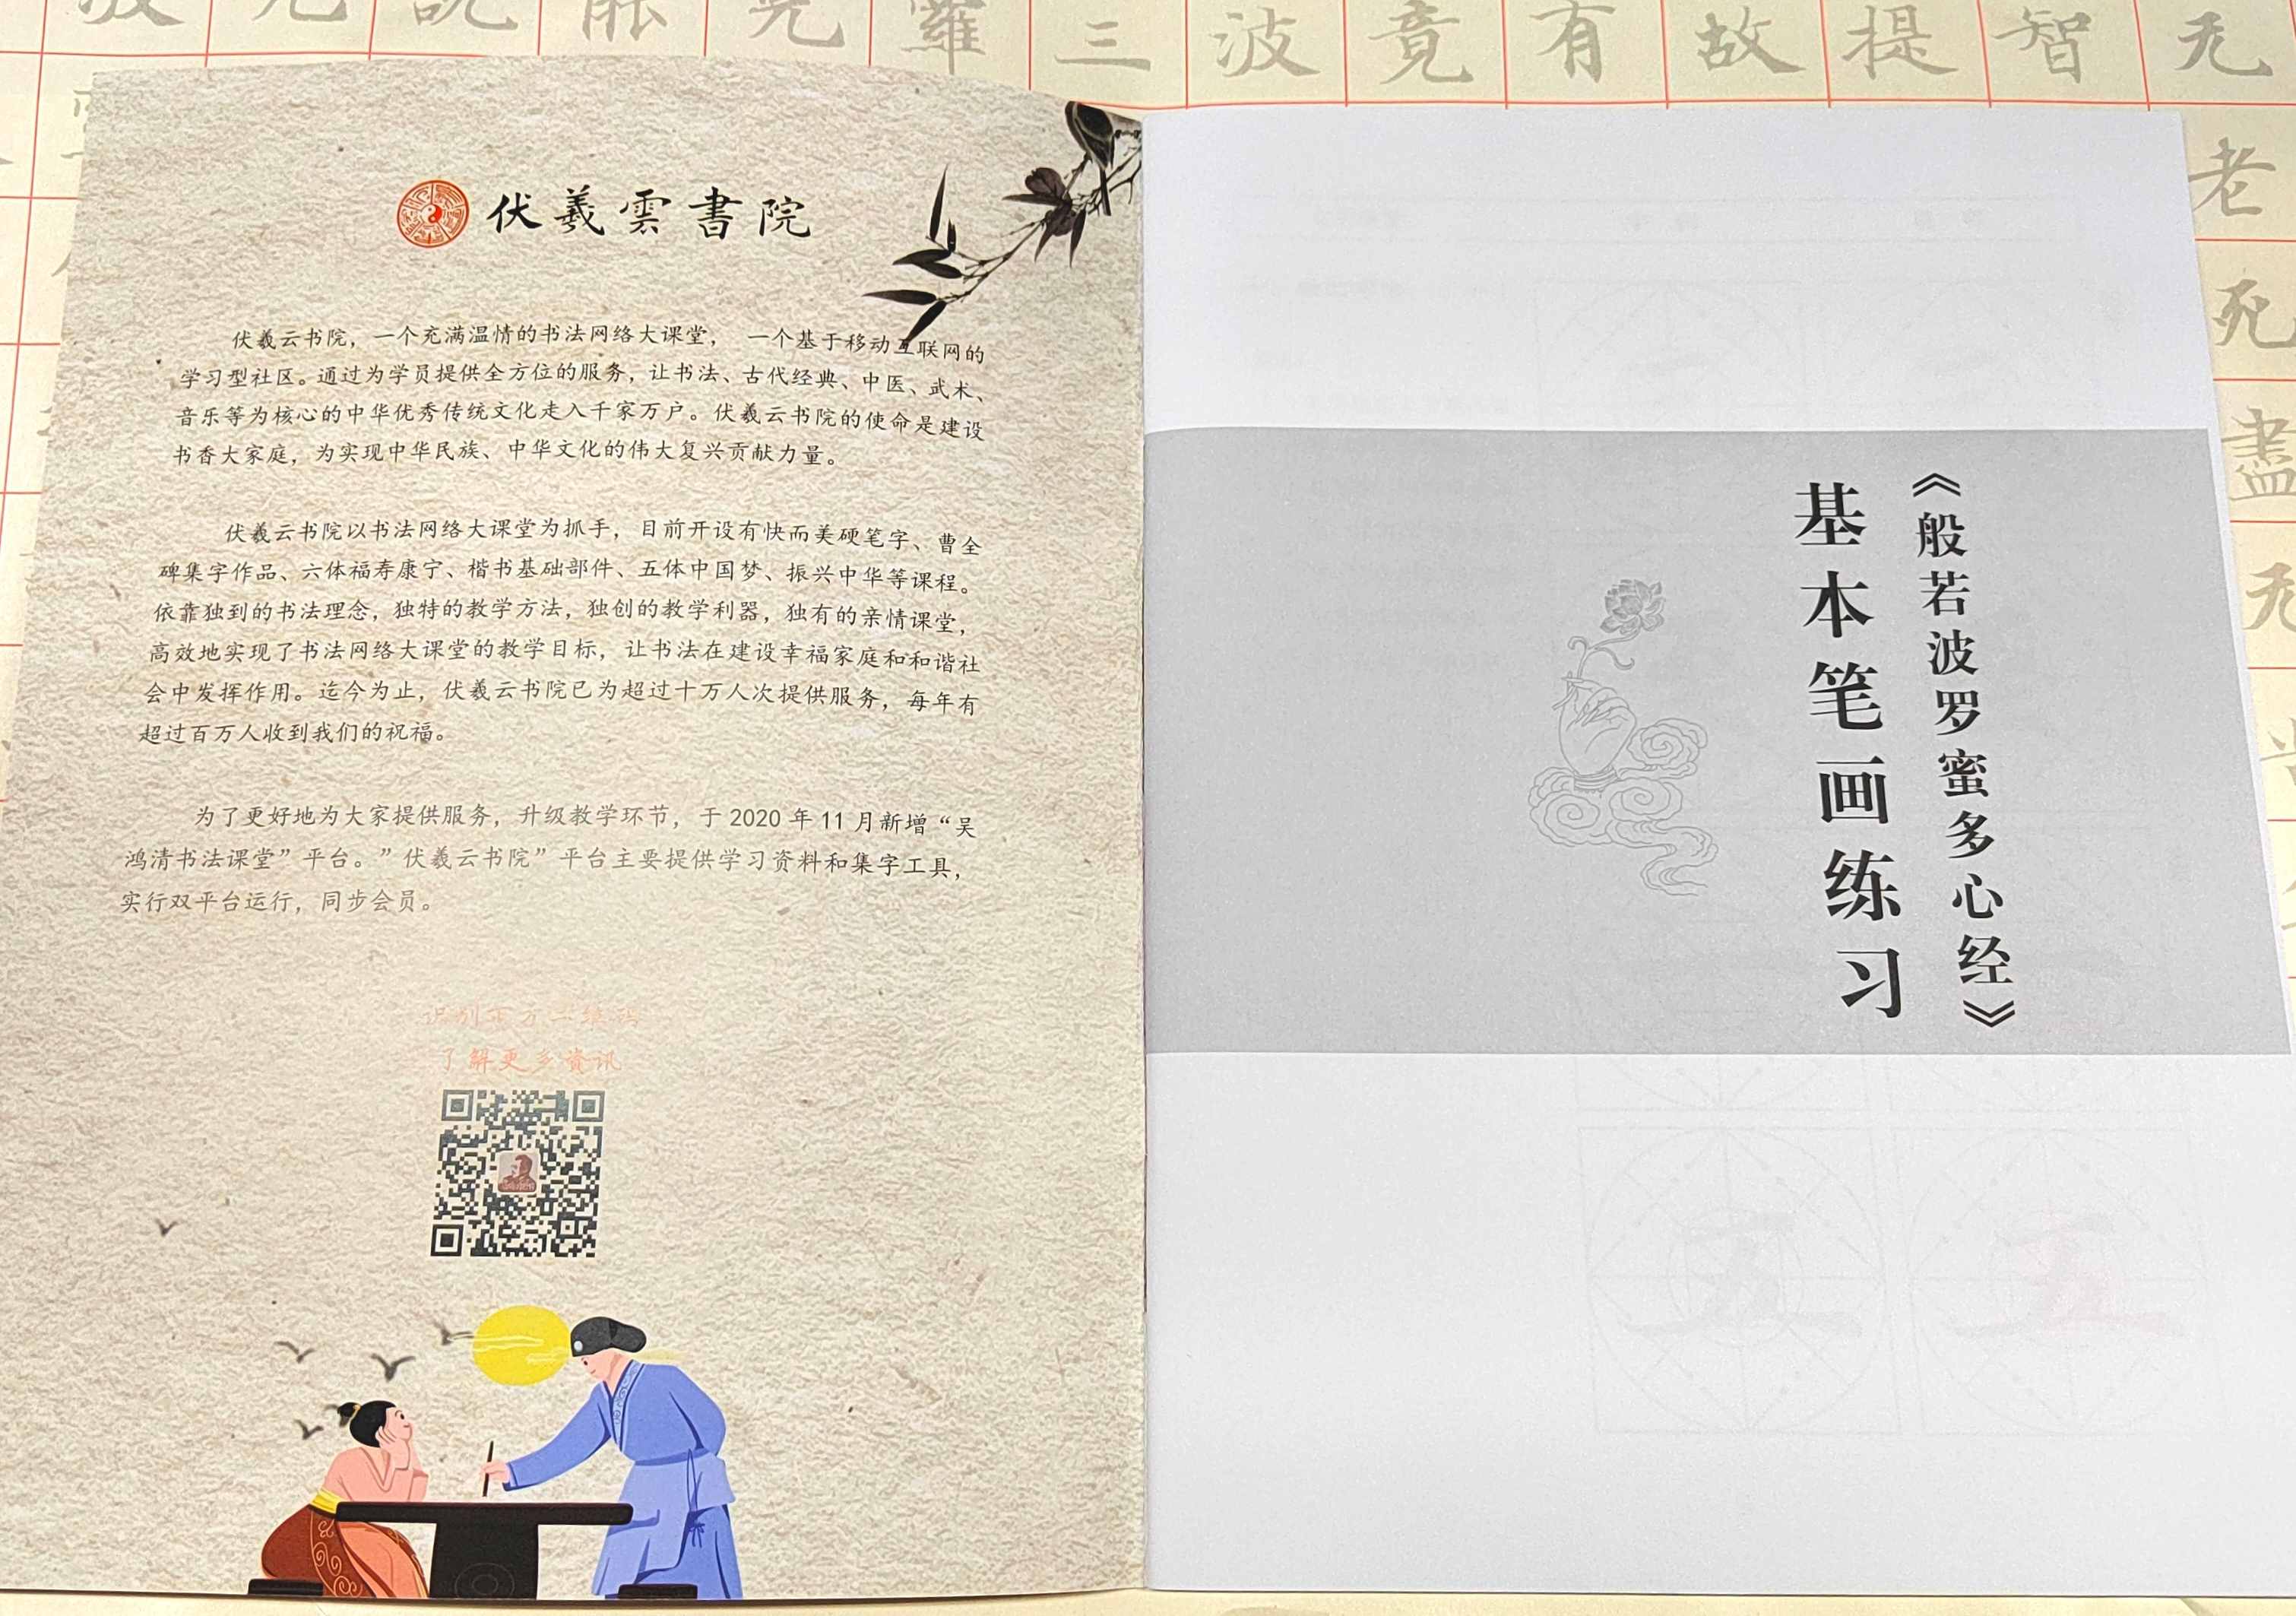 三波竟有故提智无
老
死
盡
无
伏羲雲書院
伏羲云书院，一个充满温情的书法网络大课堂， 一个基于移动互联网的
学习型社区。通过为学员提供全方位的服务，让书法、古代经典、中医、武术、
音乐等为核心的中华优秀传统文化走入千家万户。伏羲云书院的使命是建设
书香大家庭，为实现中华民族、中华文化的伟大复兴贡献力量。
伏羲云书院以书法网络大课堂为抓手，目前开设有快而美硬笔字、曹全
碑集字作品、六体福寿康宁、楷书基础部件、五体中国梦、振兴中华等课程。
依靠独到的书法理念，独特的教学方法，独创的教学利器，独有的亲情课堂，
高效地实现了书法网络大课堂的教学目标，让书法在建设幸福家庭和和谐社
会中发挥作用。迄今为止，伏羲云书院已为超过十万人次提供服务，每年有
超过百万人收到我们的祝福。
为了更好地为大家提供服务，升级教学环节，于 2020 年 11 月新增“吴
鸿清书法课堂”平台。”伏羲云书院”平台主要提供学习资料和集字工具，
实行双平台运行，同步会员。
识别下方二维码
了解更多資讯
《般若波罗蜜多心经》
基本笔画练习